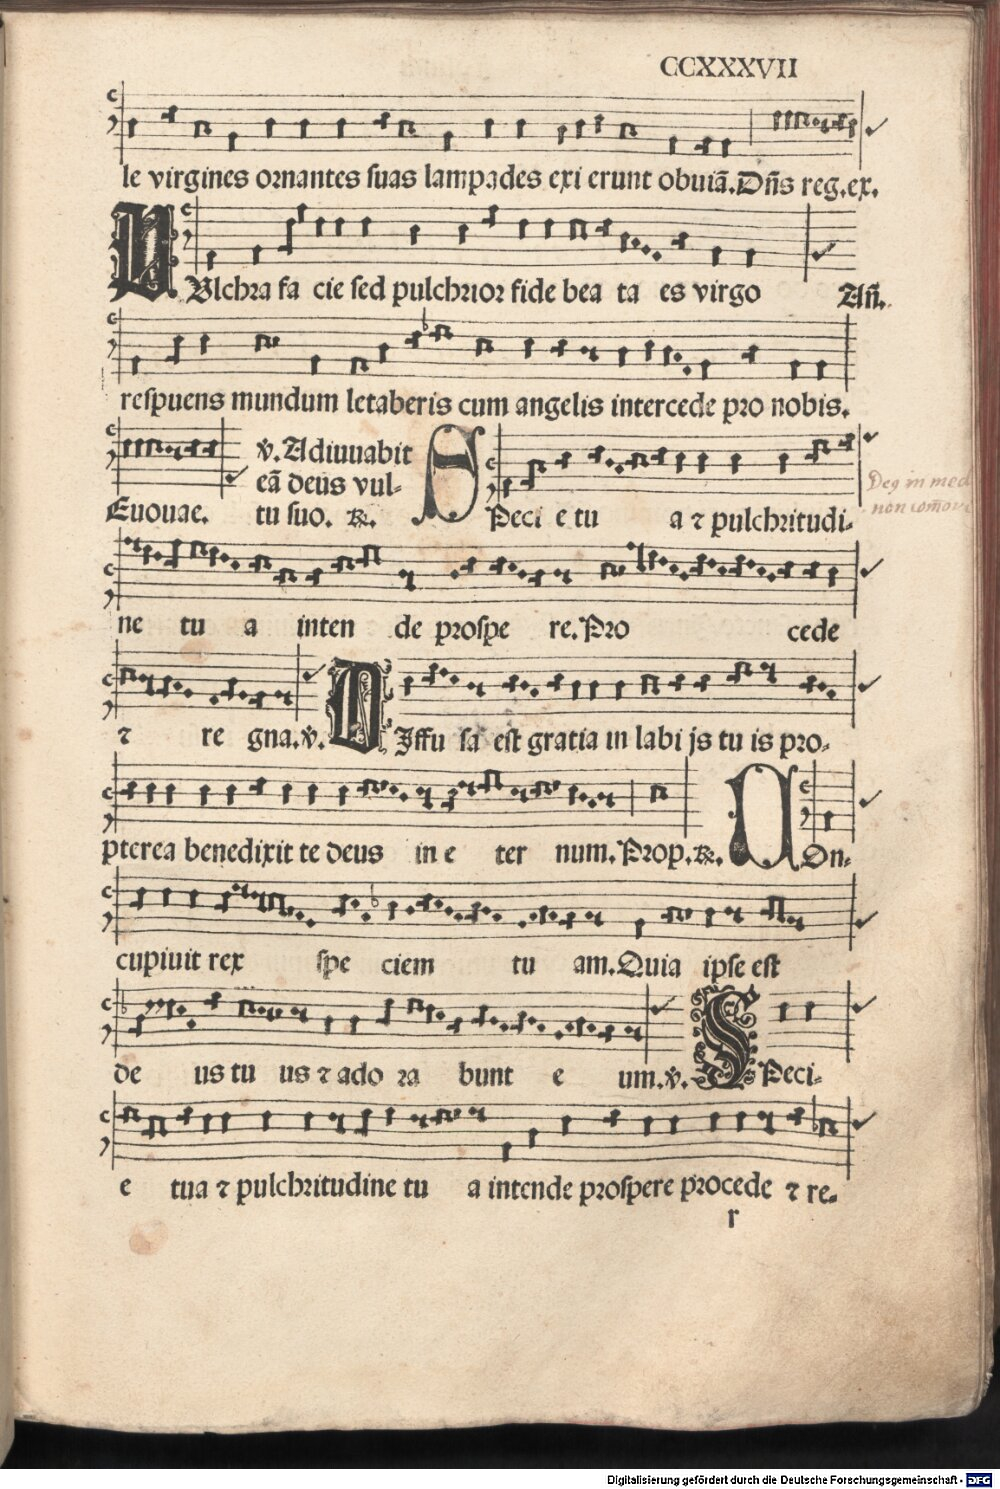 CCXXXVII
le virgines ornantes suas lampades exi erunt obuiā. Dn̄s reg. ex.
PUlchra fa cie sed pulchrior fide bea ta es virgo An̄.
respuens mundum letaberis cum angelis intercede pro nobis.
℣. Adiuuabit
eā deus vul-
Euouae. tu suo. ℟. SPeci e tu a ⁊ pulchritudi-
Deg in med
non com̄ov
ne tu a inten de prospe re. Pro cede
⁊ re gna. ℣. DIffu sa est gratia in labi js tu is pro-
pterea benedixit te deus in e ter num. Prop. ℟. COn-
cupiuit rex spe ciem tu am. Quia ipse est
de us tu us ⁊ ado ra bunt e um. ℣. SPeci-
e tua ⁊ pulchritudine tu a intende prospere procede ⁊ re-
r
Digitalisierung gefördert durch die Deutsche Forschungsgemeinschaft - DFG